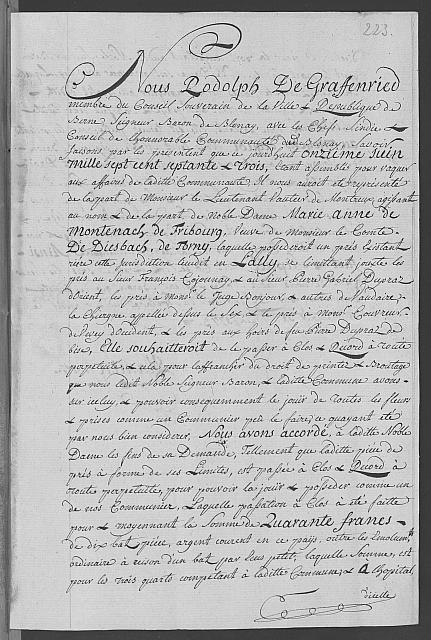 223.
Nous Rodolph De Graffenried
membre du Conseil Souverain de la Ville & Republique de
Berne Seigneur Baron de Blonay, avec les Chefs, Sindic &
Conseil de L'honorable Communauté du dit Blonay, Savoir
faisons par les présentent que ce jourd'huit Onzième Juin
Mille sept cent septante & trois, Etant assemblés pour vaquer
aux affaires de laditte Communauté Il nous auroit été représenté
de la part de Monsieur le Lieutenant Vautier de Montreux, agissant
au nom & de la part de Noble Dame Marie anne de
Montenach, de Fribourg, Veuve de Monsieur le Comte
De Diesbach, de Torny, laquelle possedroit un prés Existant
rière cette jurisdiction lieudit en Lally, se limittant jouxte les
prés au Sieur François Cojounay, & au Sieur Pierre Gabriel Dupraz
d'Orient, les prés à Monsr. le Juge Bonjour, & autres de Vaudaire
la Charque appellée dessus le Sex, & le prés à Monsr Couvreu
de Vevey d'Occident, & les prés aux hoirs de feu Pierre Dupraz de
bise, Elle souhaitteroit de le passer à Clos & Record à toute
perpetuité, & cela pour l'affranchir du droit de printée & Broutage
que nous ledit Noble Seigneur Baron, & laditte Commune avons
sur iceluy, & pouvoir consequemment le jouir de toutes les fleurs
& prises comme un Communier peu le faire; ce quayant été
par nous bien considerer, Nous avons accordé, à laditte Noble
Dame les fins de sa Demande, Tellement que laditte pièce de
prés à forme de ses Limites, est passée à Clos & Record à
toute perpetuité, pour pouvoir la jouir & posséder comme un
de nos Communier, Laquelle passation à Clos à été faitte
pour & moyennant la Somme de Quarante francs
de dix bat pièce, argent courent en ce païs, outre les Emolumts
ordinaire à reison d'un bat par Ieus petit, laquelle Somme, est
pour les trois quarts compétant à laditte Commune, & à l'hopital
d'icelle